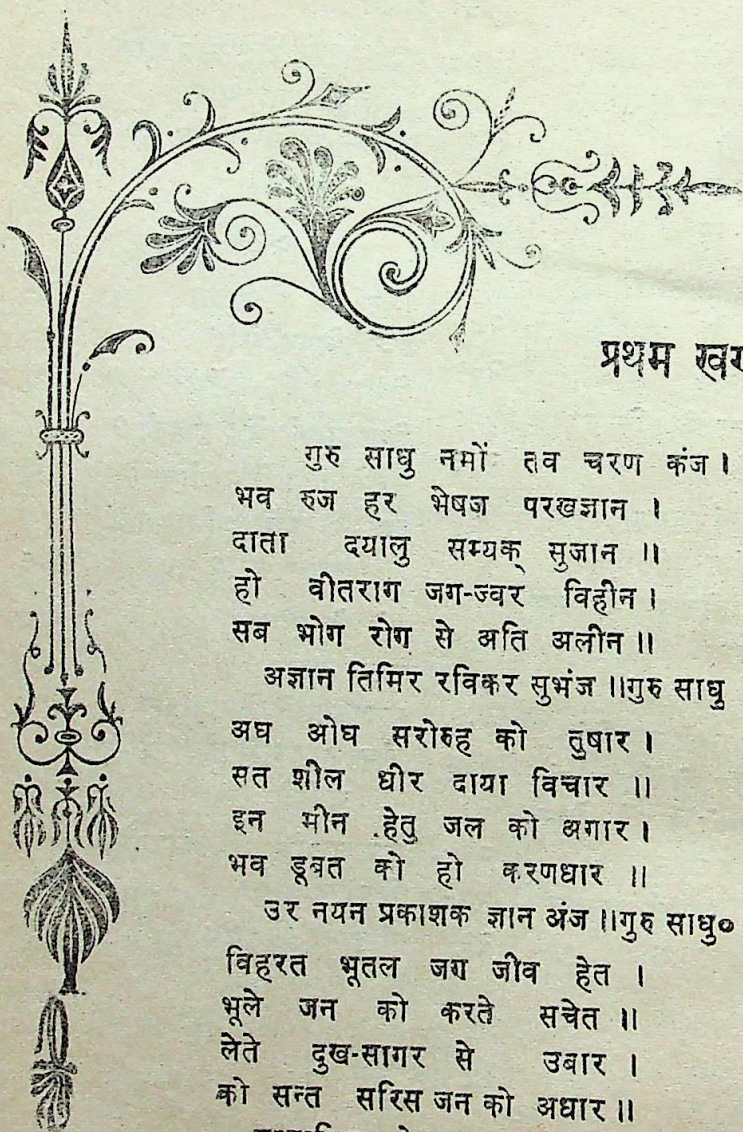 प्रथम
गुरु साधु नमों तव चरण कंज ।
भव रुज हर भेषज परखज्ञान ।
दाता दयालु सम्यक् सुजान ॥
हो वीतराग जग-ज्वर विहीन ।
सब भोग रोग से अति अलीन ॥
अज्ञान तिमिर रविकर सुभंज ॥गुरु साधु
अघ ओघ सरोरुह को तुषार ।
सत शील धीर दाया विचार ॥
इन मीन हेतु जल को अगार ।
भव डूबत को हो करणधार ॥
उर नयन प्रकाशक ज्ञान अंज ॥गुरु साधु०
विहरत भूतल जग जीव हेत ।
भूले जन को करते सचेत ॥
लेते दुख-सागर से उबार ।
को सन्त सरिस जन को अधार ॥